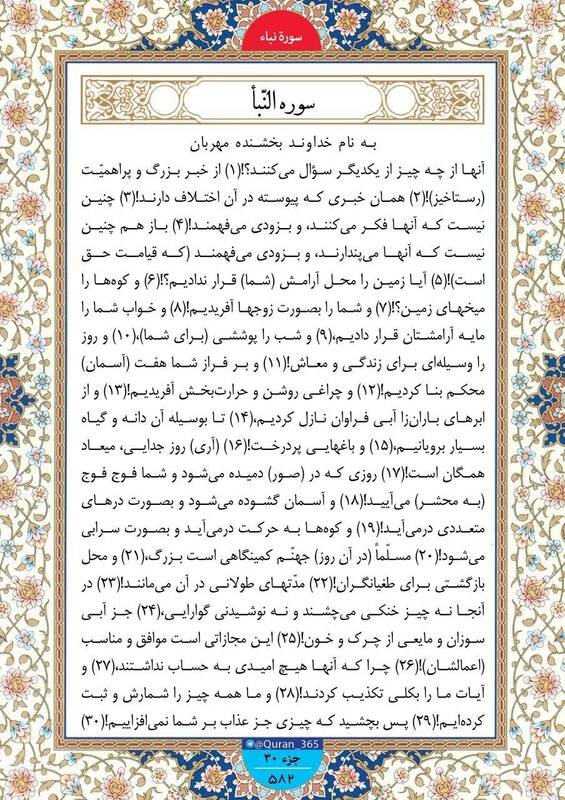 سورة نباء
سوره النّبأ
به نام خداوند بخشنده مهربان
آنها از چه چیز از یکدیگر سؤال می‌کنند؟!(۱) از خبر بزرگ و پراهمیّت
(رستاخیز)!(۲) همان خبری که پیوسته در آن اختلاف دارند!(۳) چنین
نیست که آنها فکر می‌کنند، و بزودی می‌فهمند!(۴) باز هم چنین
نیست که آنها می‌پندارند، و بزودی می‌فهمند (که قیامت حق
است)!(۵) آیا زمین را محل آرامش (شما) قرار ندادیم؟!(۶) و کوه‌ها را
میخهای زمین؟!(۷) و شما را بصورت زوجها آفریدیم!(۸) و خواب شما را
مایه آرامشتان قرار دادیم،(۹) و شب را پوششی (برای شما)،(۱۰) و روز
را وسیله‌ای برای زندگی و معاش!(۱۱) و بر فراز شما هفت (آسمان)
محکم بنا کردیم!(۱۲) و چراغی روشن و حرارت‌بخش آفریدیم!(۱۳) و از
ابرهای باران‌زا آبی فراوان نازل کردیم،(۱۴) تا بوسیله آن دانه و گیاه
بسیار برویانیم،(۱۵) و باغهایی پردرخت!(۱۶) (آری) روز جدایی، میعاد
همگان است!(۱۷) روزی که در (صور) دمیده می‌شود و شما فوج فوج
(به محشر) می‌آیید!(۱۸) و آسمان گشوده می‌شود و بصورت درهای
متعددی درمی‌آید!(۱۹) و کوه‌ها به حرکت درمی‌آید و بصورت سرابی
می‌شود!(۲۰) مسلّماً (در آن روز) جهنّم کمینگاهی است بزرگ،(۲۱) و محل
بازگشتی برای طغیانگران!(۲۲) مدّتهای طولانی در آن می‌مانند!(۲۳) در
آنجا نه چیز خنکی می‌چشند و نه نوشیدنی گوارایی،(۲۴) جز آبی
سوزان و مایعی از چرک و خون!(۲۵) این مجازاتی است موافق و مناسب
(اعمالشان)!(۲۶) چرا که آنها هیچ امیدی به حساب نداشتند،(۲۷) و
آیات ما را بکلی تکذیب کردند!(۲۸) و ما همه چیز را شمارش و ثبت
کرده‌ایم!(۲۹) پس بچشید که چیزی جز عذاب بر شما نمی‌افزاییم!(۳۰)
@Quran_365
جزء ۳۰
۵۸۲